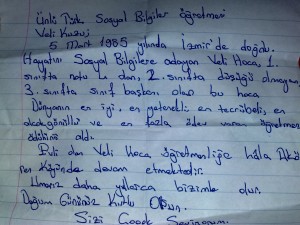 Ünlü Türk Sosyal Bilgiler öğretmeni
Veli Kuzu
5 Mart 1985 yılında İzmir'de doğdu.
Hayatını Sosyal Bilgilere adayan Veli Hoca, 1.
sınıfta notu 4 den, 2. sınıfta düşüğü olmayan
3. sınıfta sınıf başkanı olan bu hoca
Dünyanın en iyi, en yetenekli en tecrübeli, en
alçakgönüllü ve en fazla ödev veren öğretmen
ödülünü aldı.
Veli Hoca öğretmenliğe hâlâ
Köyünde devam etmektedir.
Umarız daha yıllarca bizimle olur.
Doğum Gününüz Kutlu Olsun.
Sizi Çoook Seviyorum.